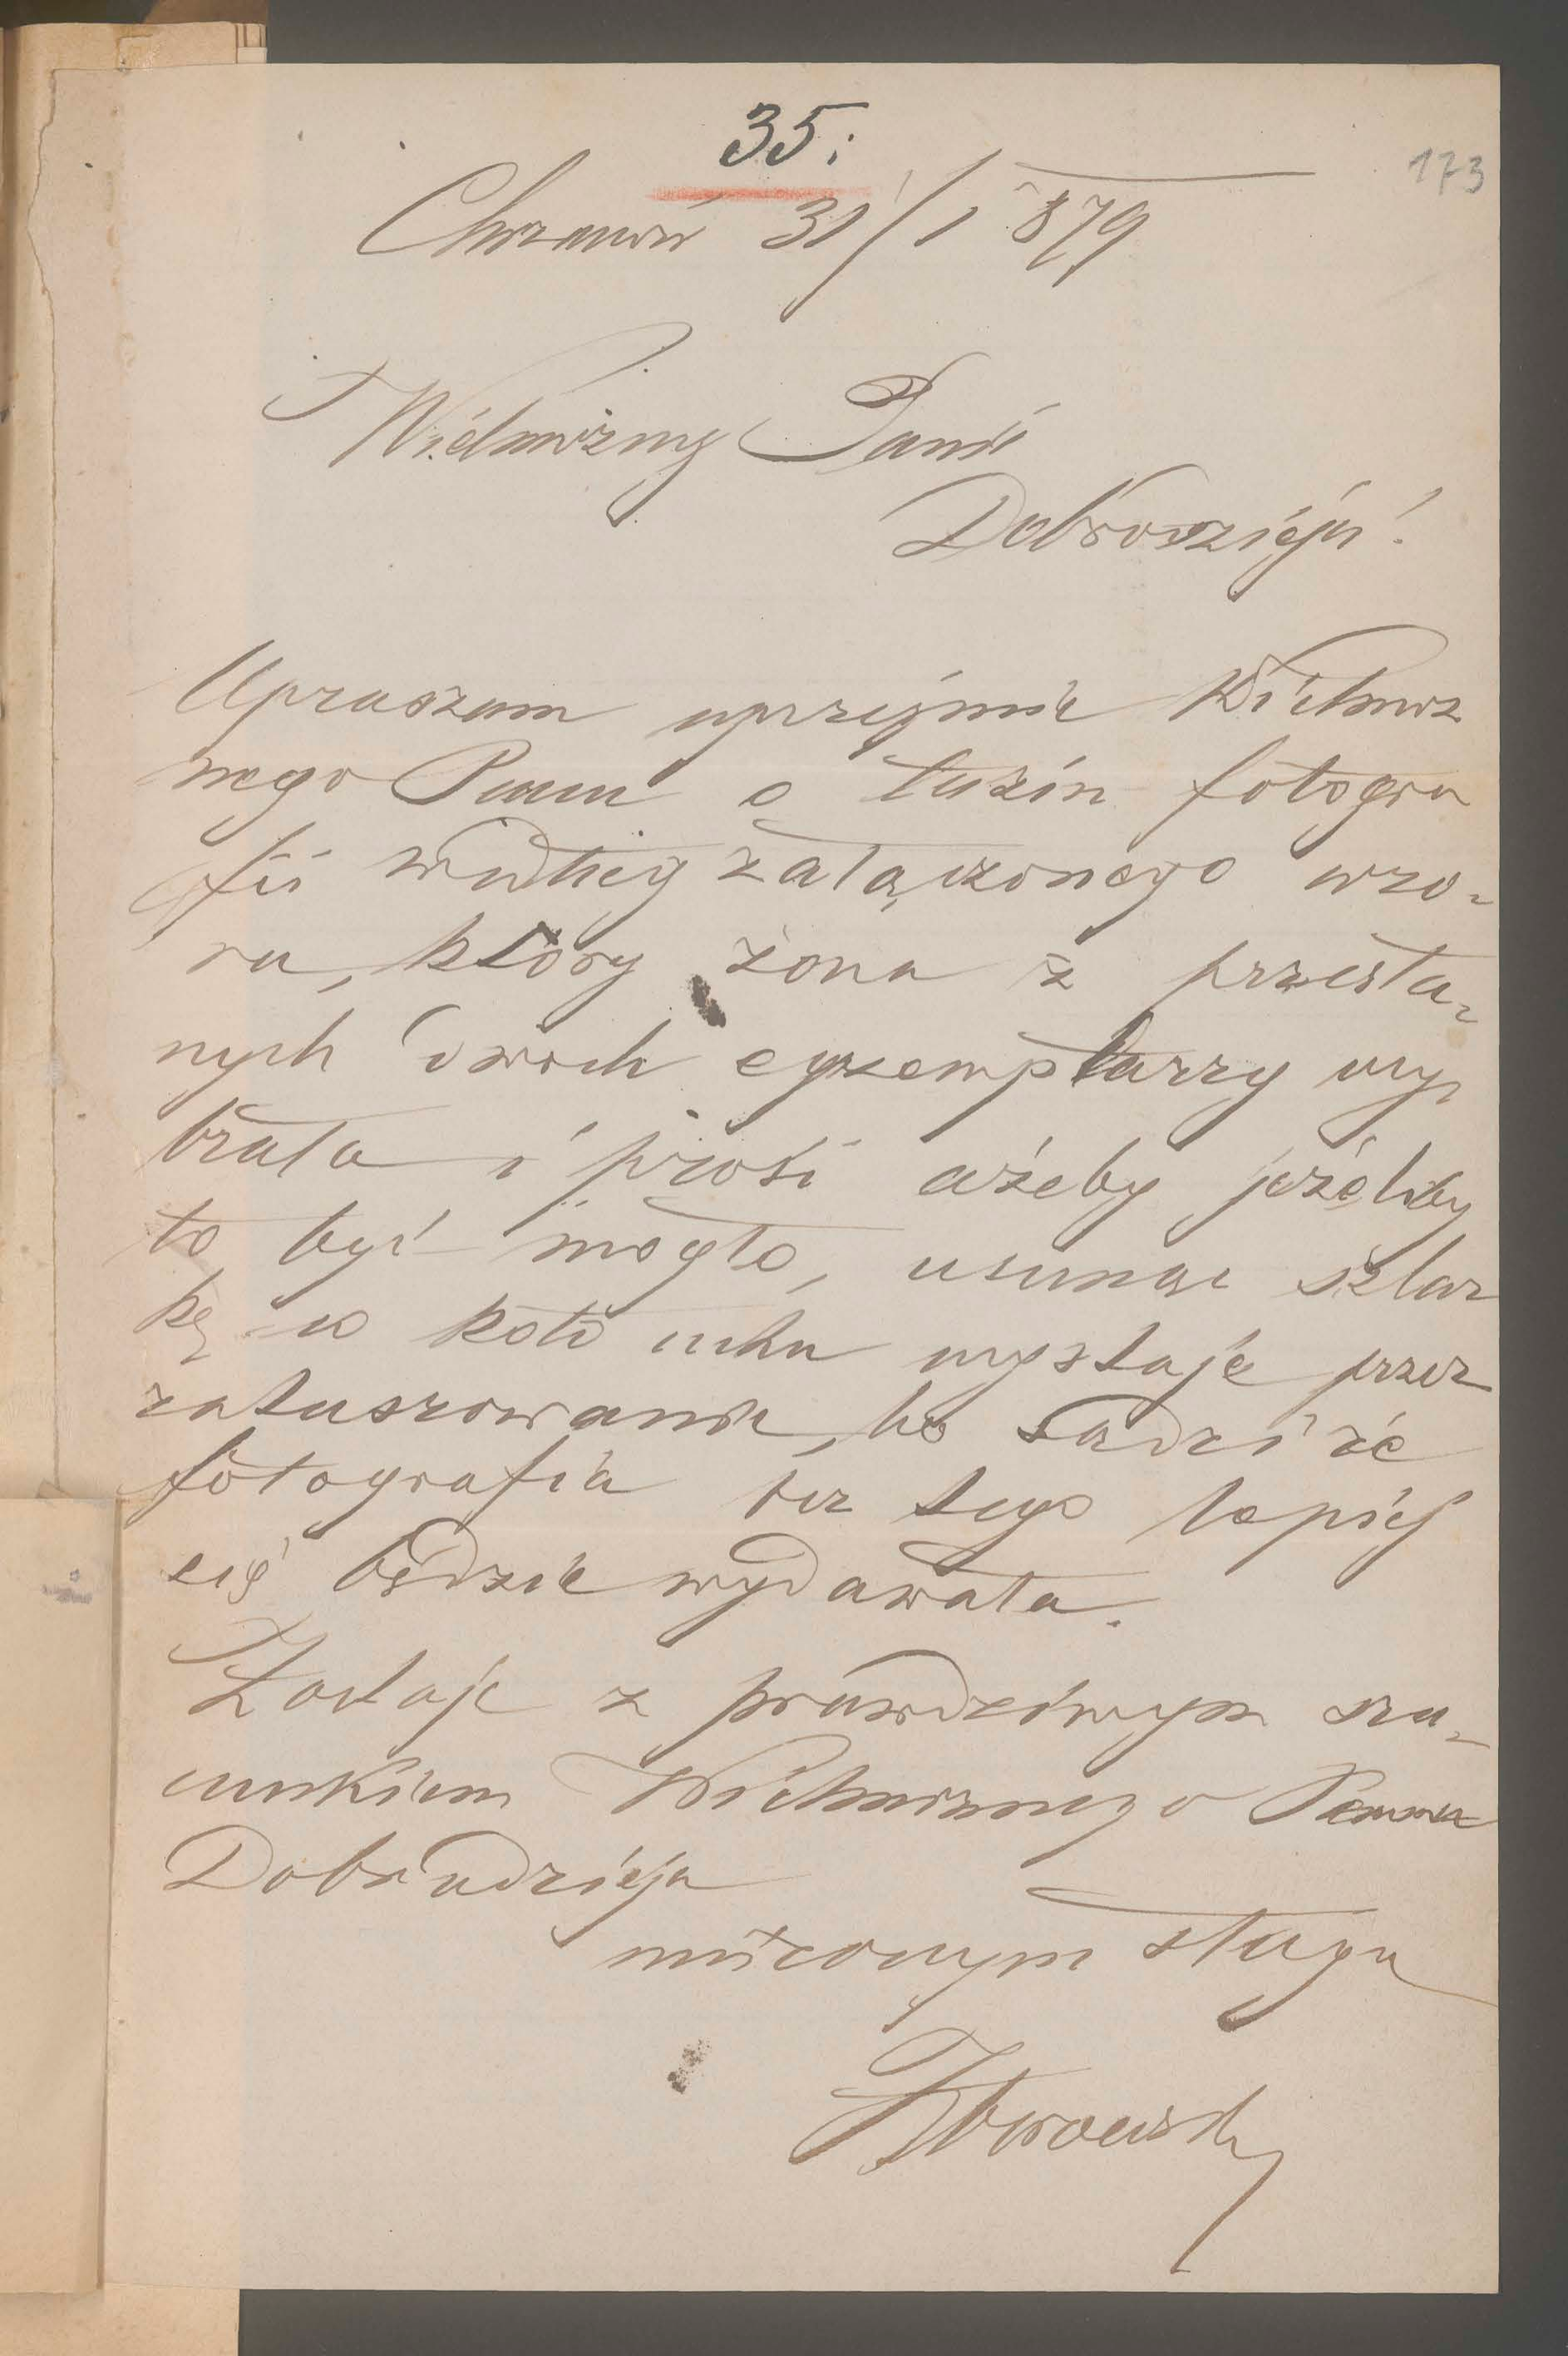 35.
173
Chrzanów 31/1 879
Wielmożny Panie
Dobrodzieju!
Upraszam uprzejmie Wielmoż
nego Pana o tuzin fotogra
fii według załączonego wzo-
ru, który żona z przesła-
nych dwóch egzemplarzy wy-
brała i prosi ażeby jeżeliby
to być mogło, usunąć szlar
kę co koło ucha wystaje przez
zatuszowanie, bo sądzi że
fotografia bez tego lepiej
się będzie wydawała.
Zostaję z prawdziwym sza-
cunkiem Wielmożnego Pana
Dobrodzieja
uniżonym sługą